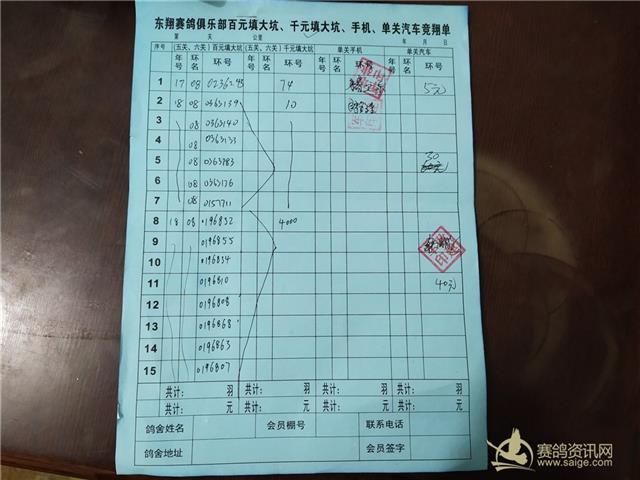 东翔赛鸽俱乐部百元填大坑、千元填大坑、手机、单关汽车竞翔单
第 关 公里 年 月 日
序号 (五关、六关)百元填大坑 (五关、六关)千元填大坑 单关手机 单关汽车
年号 环名 环号 年号 环名 环号 年号 环名 环号 年号 环名 环号
1 17 08 74 5元
2 18 08 0363139 10
3 08 0363140
4 08 0363133
5 08 0363983 30
6 08 0363176
7 08 0157711
8 18 08 0196832 4000
9 0196855
10 0196834
11 0196810 40元
12 0196808
13 0196868
14 0196863
15 0196807
共计: 羽 共计: 羽 共计: 羽 共计: 羽
共计: 元 共计: 元 共计: 元 共计: 元
鸽舍姓名 会员棚号 联系电话
鸽舍地址 会员签字
赛鸽资讯网
www.saige.com